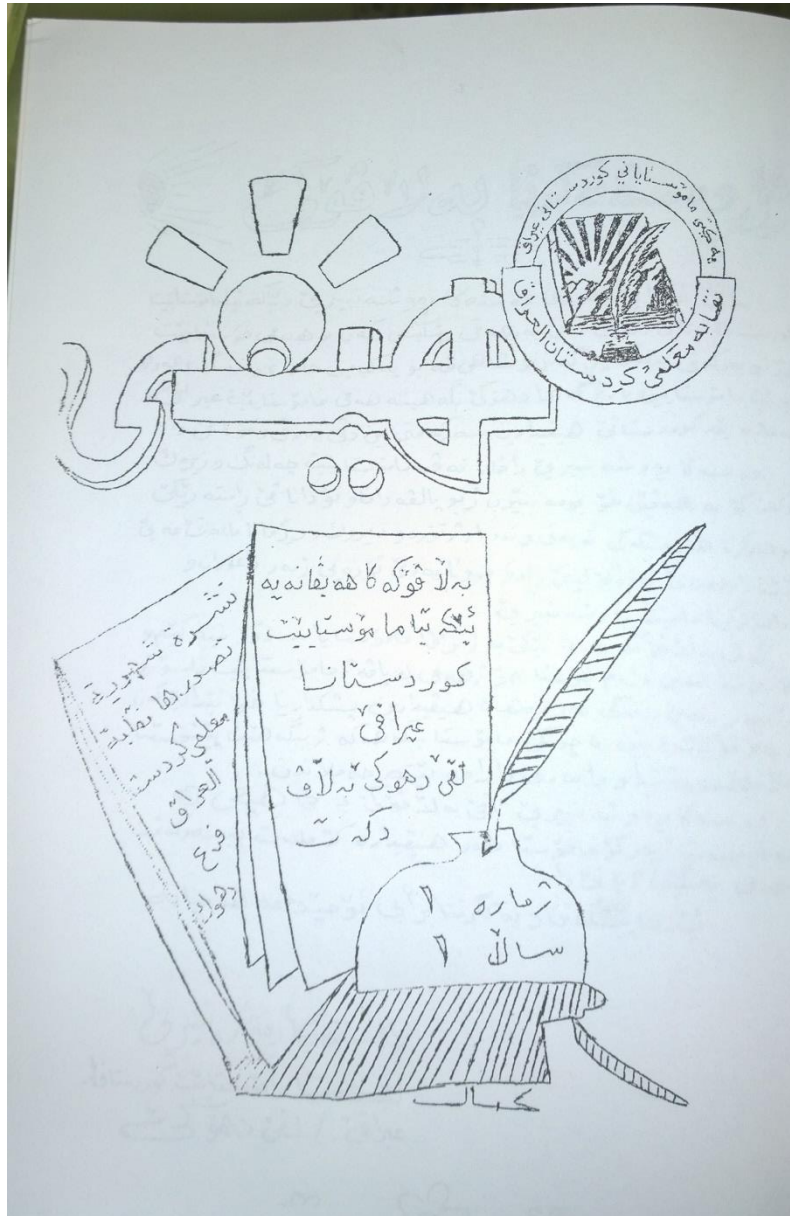 یە کێتی مامۆستایانی کوردستانی عیراق
نقابة معلمي كردستان العراق
بەڵاڤۆکە کا هەیڤانەیە
ئێکەتیا مامۆستایێت
کوردستانا
عیراقێ
لقێ دهوکێ بەلاڤ
دکەت
نشرة شهرية
تصدرها نقابة
معلمي كردست
العراق
فرع
دهوك
ژمارە ١
ساڵ ١